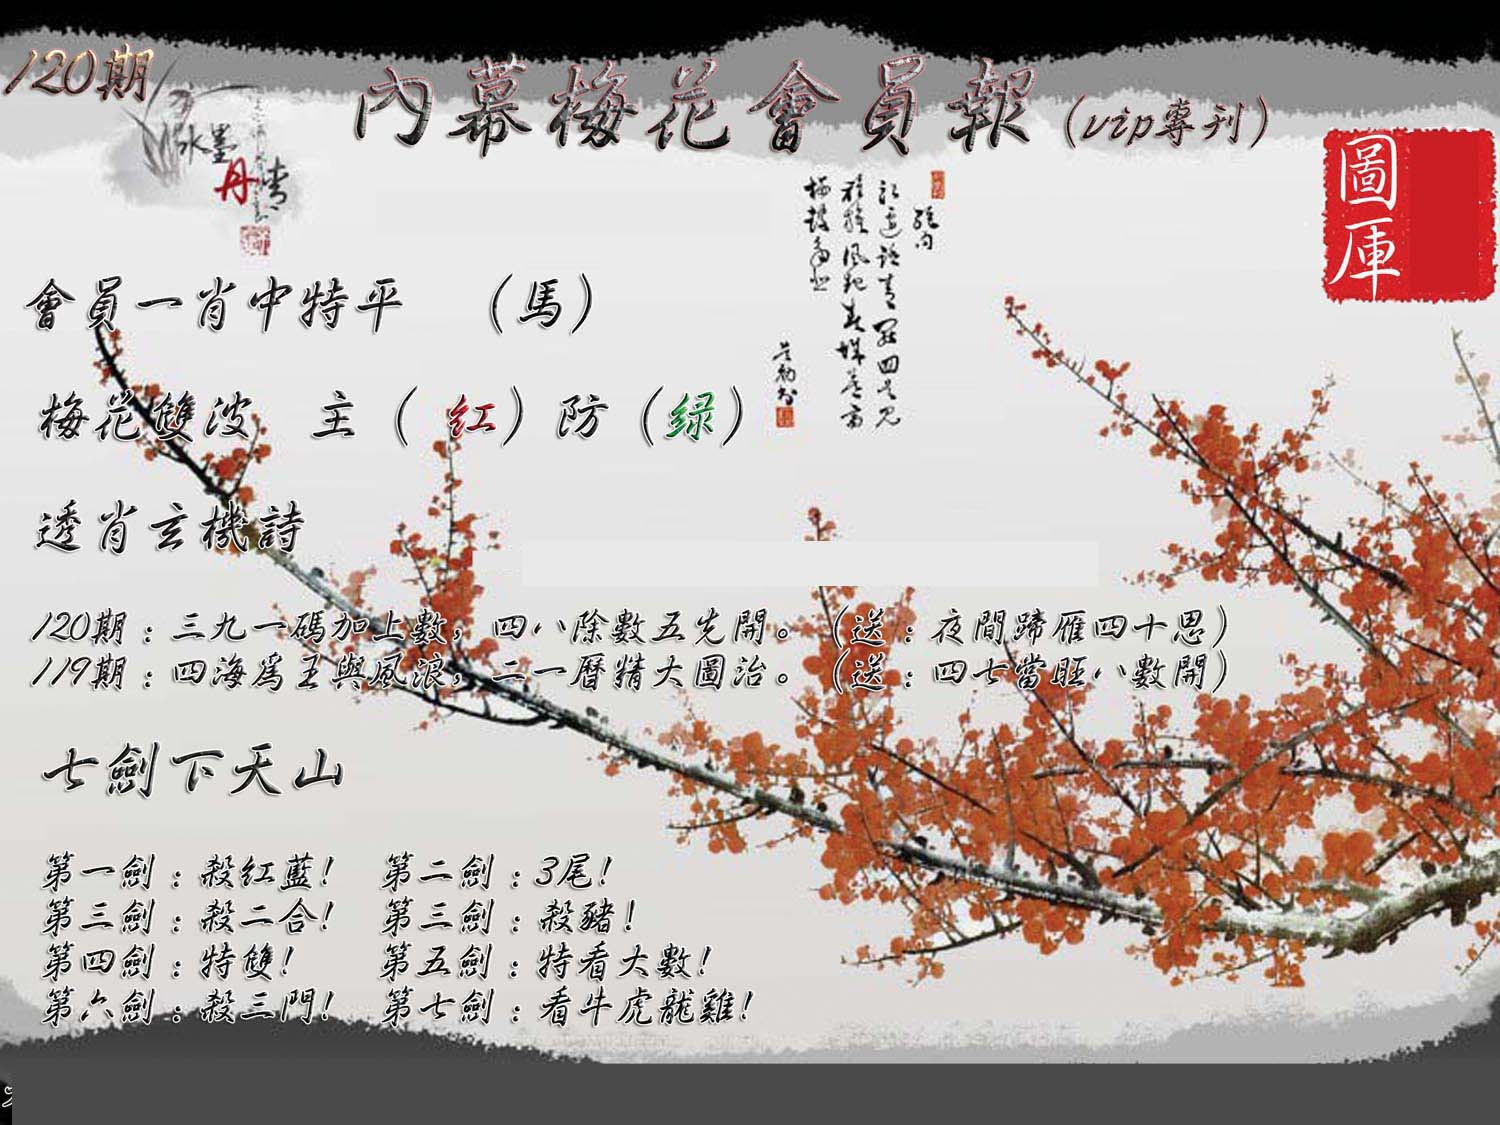 120期
內幕梅花會員報(vip專刊)
水墨
丹青
圖
庫
會員一肖中特平 (馬)
梅花雙波 主(紅)防(绿)
透肖玄機詩
120期:三九一碼加上數,四八除數五先開。(送:夜間蹄雁四十思)
119期:四海為王與風浪,二一曆精大圖治。(送:四七當旺八數開)
七劍下天山
第一劍:殺紅藍! 第二劍:3尾!
第三劍:殺二合! 第三劍:殺豬!
第四劍:特雙! 第五劍:特看大數!
第六劍:殺三門! 第七劍:看牛虎龍雞!